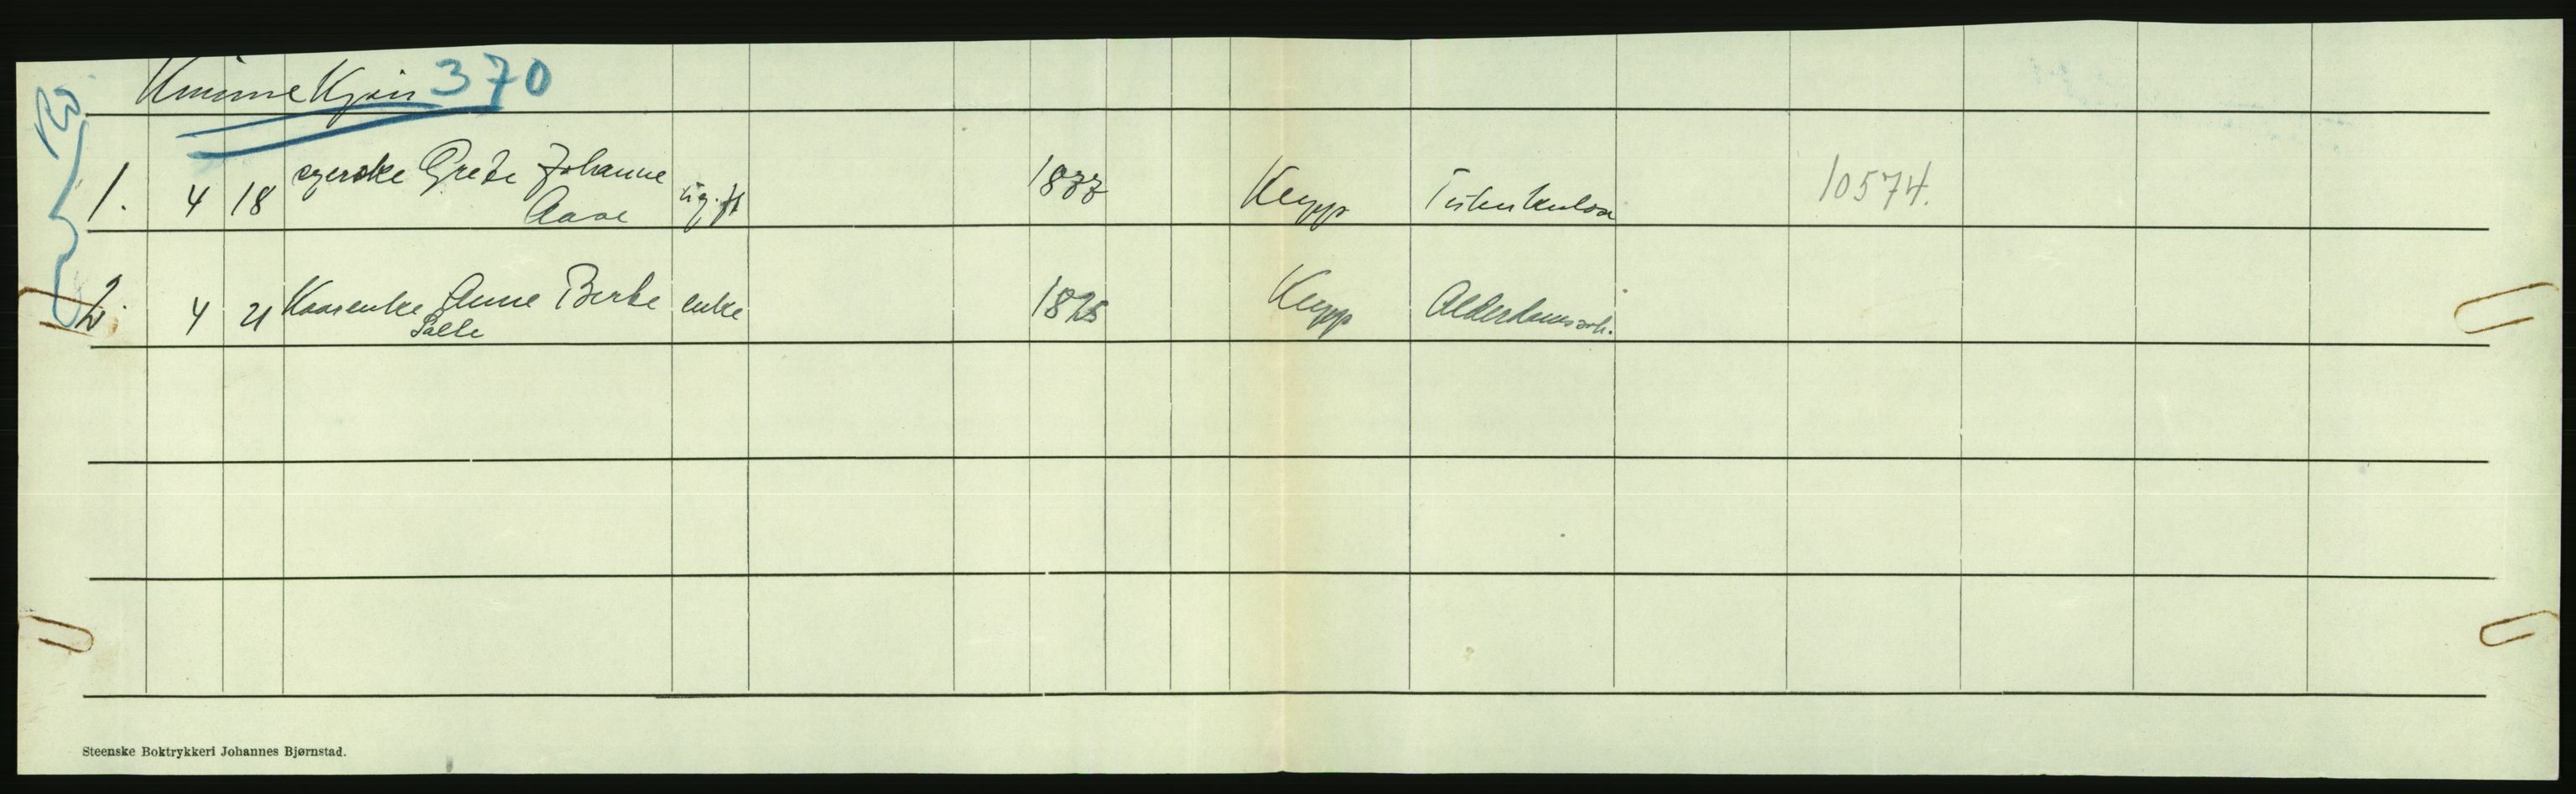 Kvinnekjøn 370
1. 4 18 syerske Grete Johanne Aase ugift 1877 Klepp Tuberkulose 10574.
2. 4 21 Kaarenke Anne Berte Salte enke 1825 Klepp Alderdomssvk.
Steenske Boktrykkeri Johannes Bjørnstad.